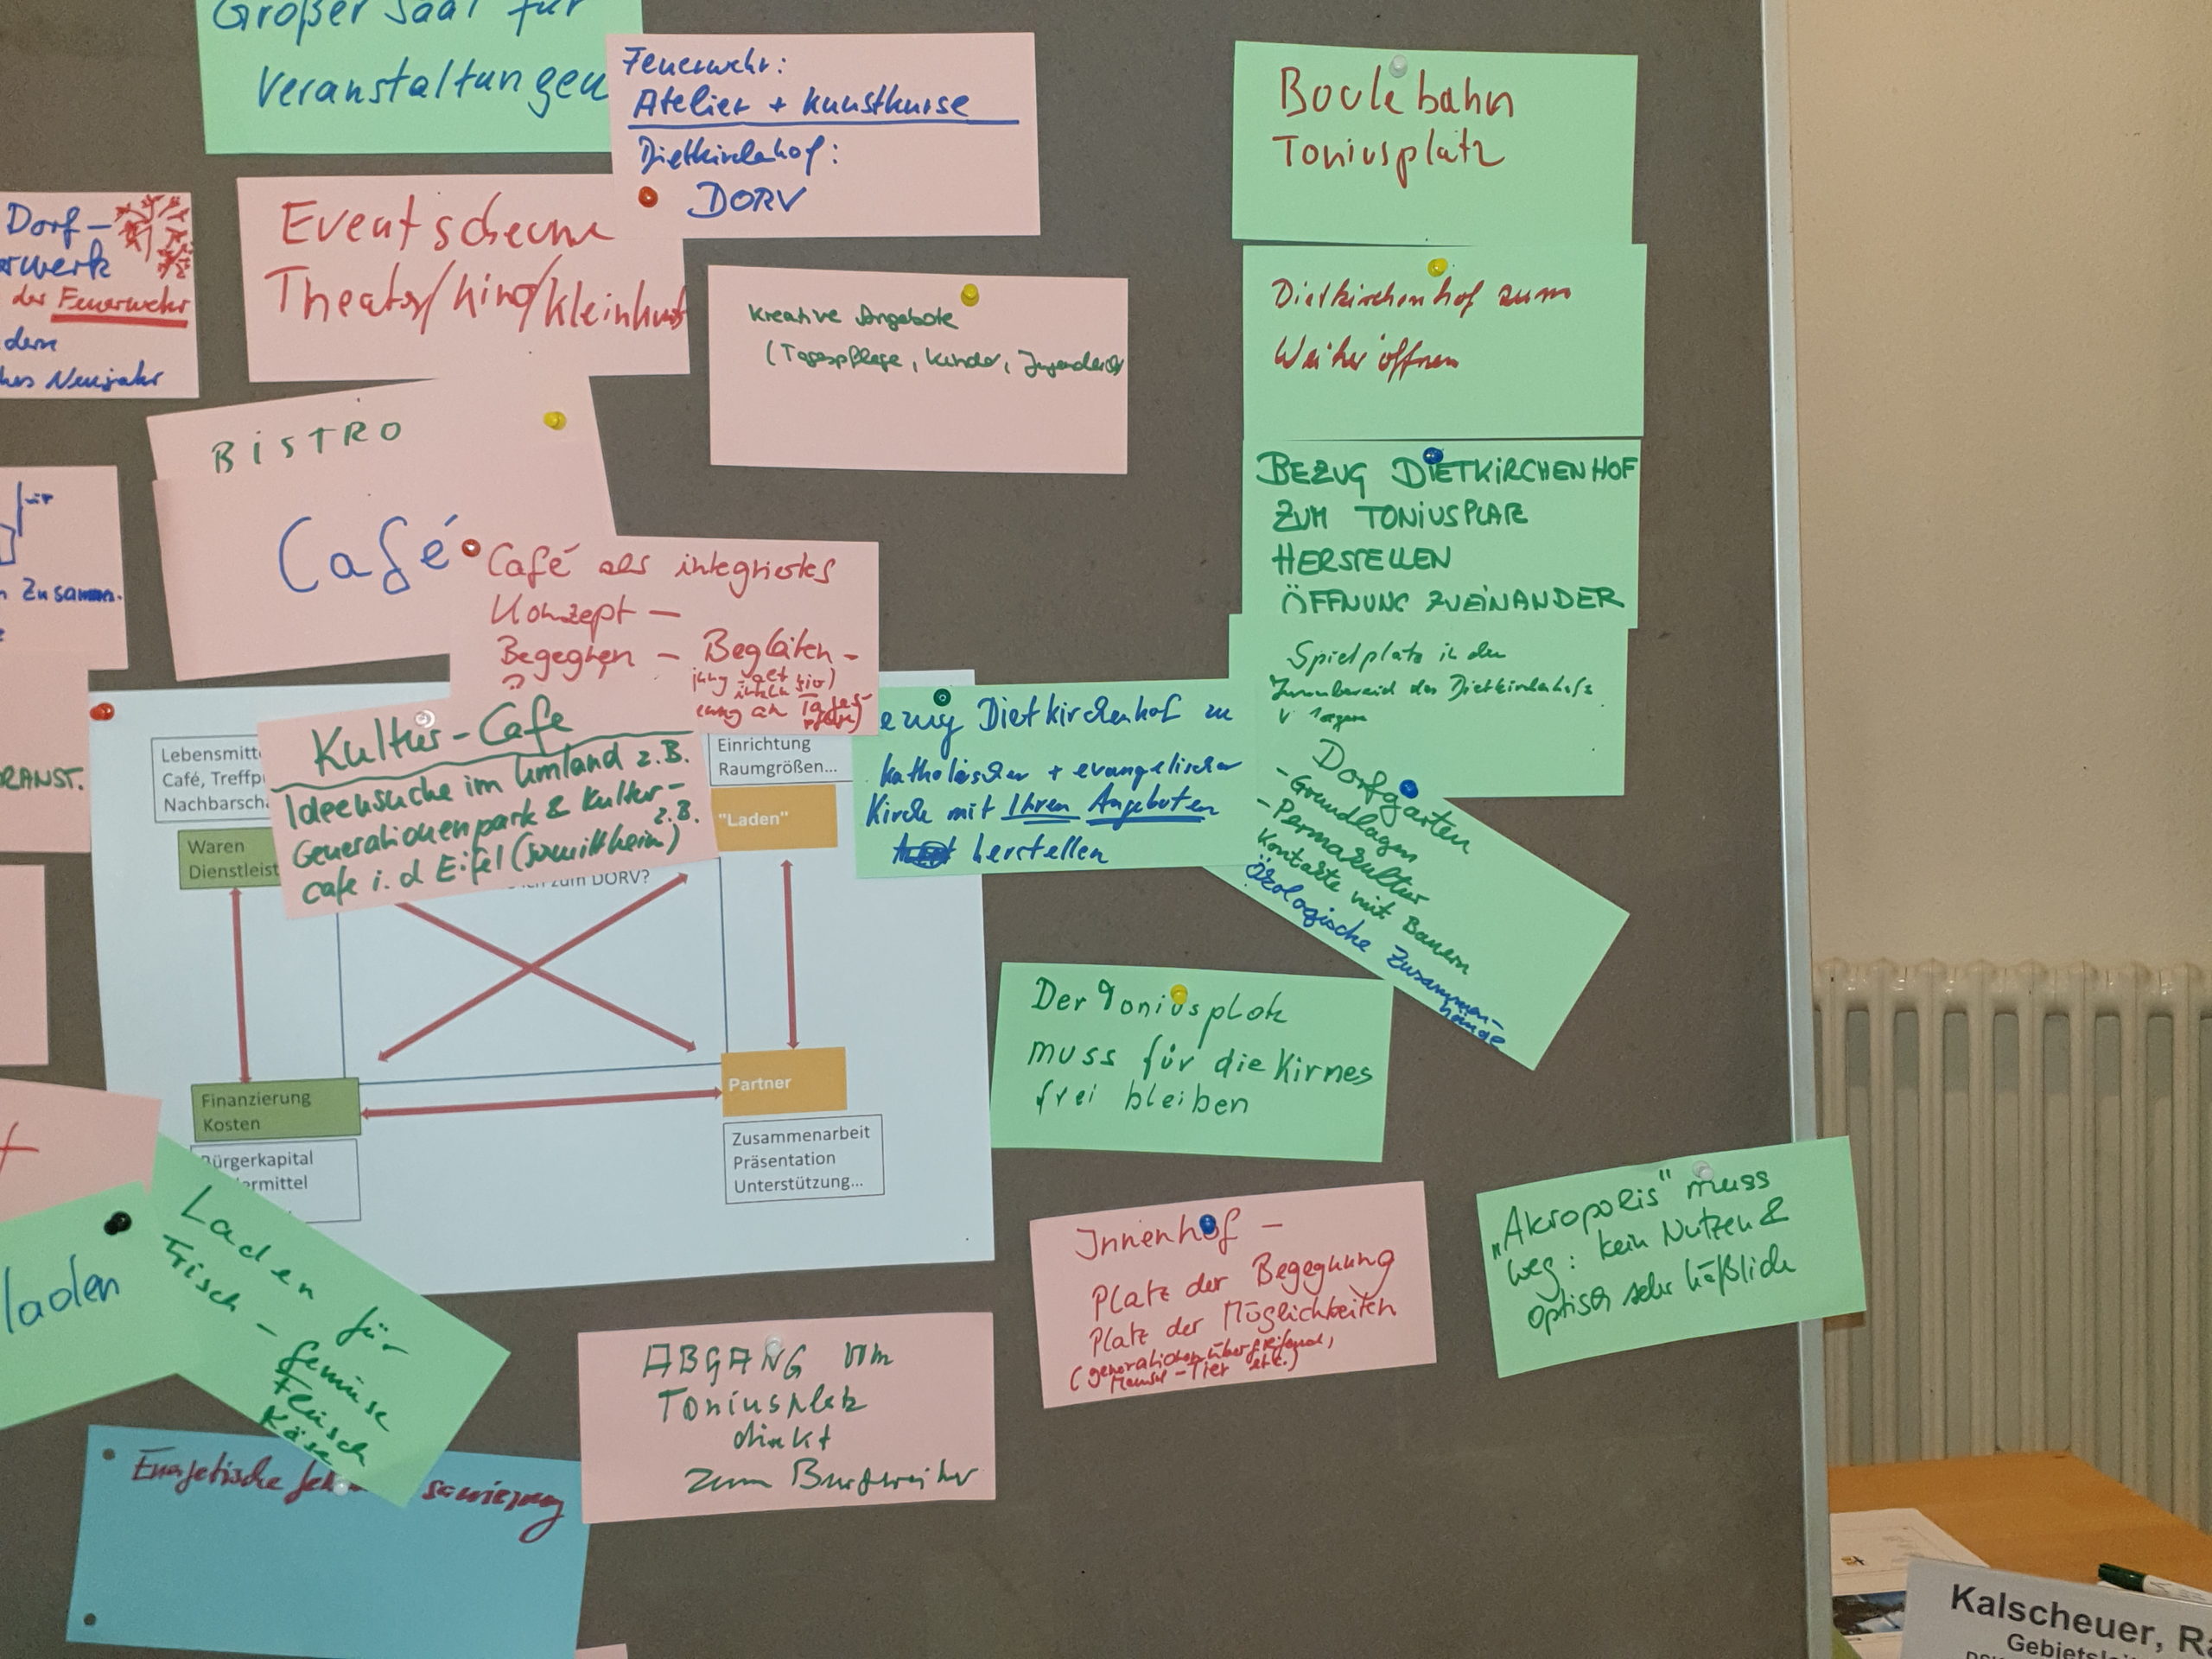 Großer Saal für
Veranstaltungen
Feuerwehr:
Atelier + Kunstkurse
Dietkirchenhof:
DORV
Boule bahn
Toniusplatz
Dorf-
erwerk
der Feuerwehr
dem
Neujahr
Eventscheune
Theater/Kino/Kleinkunst
Kreative Angebote
(Tagespflege, Kinder, Jugendarb
Dietkirchenhof zum
Weiher öffnen
BISTRO
Café
für
Zusamm.
Café als integriertes
Konzept -
Begegnen - Begleiten -
BEZUG DIETKIRCHENHOF
ZUM TONIUSPLATZ
HERSTELLEN
ÖFFNUNG ZUEINANDER
Spielplatz in den
Innenbereich des Dietkirchenhofs
RANST.
Kultur-Cafe
Ideensuche im Umland z.B.
Generationenpark & Kultur-
z.B.
cafe i. d Eifel (Schmittheim)
Lebensmitte
Café, Treffpu
Nachbarscha
Waren
Dienstleist
zum DORV?
Einrichtung
Raumgrößen...
"Laden"
ezug Dietkirchenhof zu
katholischer + evangelischer
Kirche mit Ihren Angeboten
herstellen
Dorfgarten
- Grundlagen
- Permakultur
Kontakte mit Bauern
Ökologische Zusammen-
hänge
Der Toniusplatz
muss für die Kirmes
frei bleiben
Finanzierung
Kosten
Bürgerkapital
ermittel
Partner
Zusammenarbeit
Präsentation
Unterstützung...
laden
Laden für
Frisch -
Gemüse
Fleisch
Käse
Innenhof -
Platz der Begegnung
Platz der Möglichkeiten
(generationenübergreifend,
Mensch-Tier etc.)
"Akropolis" muss
weg: kein Nutzen &
optisch sehr häßlich
ABGANG vom
Toniusplatz
direkt
zum Burgweiher
Energetische sanierung
Kalscheuer, Ra
Gebietslei